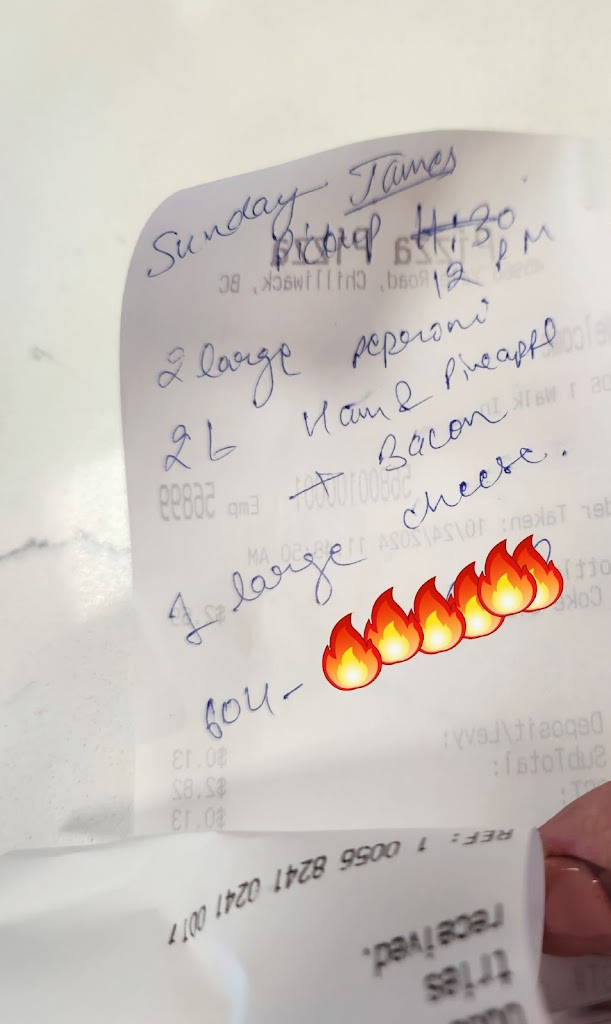 Sunday James
Pickup 11:30
12 PM
2 large peperoni
2 L Ham & Pineapple
+ Bacon
1 large cheese.
604-
Pizza Pizza
Road, Chilliwack, BC
1 Walk In
568001000001 Emp 56899
der Taken: 10/24/2024 11:48:50 AM
Coke
Deposit/Levy: $0.13
SubTotal: $2.82
$0.13
REF: 1 0056 8241 0241 0011
received.
tries